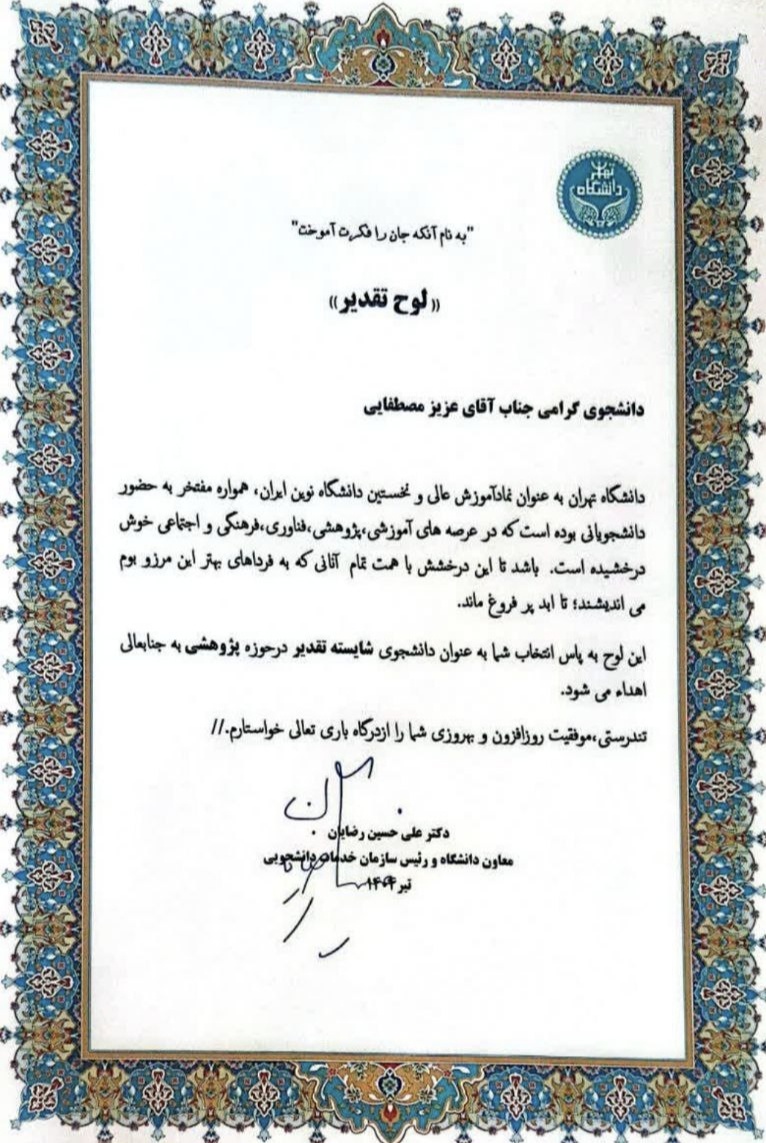 دانشگاه
تهران
"به نام آنکه جان را فکرت آموخت"
«لوح تقدیر»
دانشجوی گرامی جناب آقای عزیز مصطفایی
دانشگاه تهران به عنوان نمادآموزش عالی و نخستین دانشگاه نوین ایران، همواره مفتخر به حضور
دانشجویانی بوده است که در عرصه های آموزشی،پژوهشی،فناوری،فرهنگی و اجتماعی خوش
درخشیده است. باشد تا این درخشش با همت تمام آنانی که به فرداهای بهتر این مرزو بوم
می اندیشند؛ تا ابد پر فروغ ماند.
این لوح به پاس انتخاب شما به عنوان دانشجوی شایسته تقدیر درحوزه پژوهشی به جنابعالی
اهداء می شود.
تندرستی،موفقیت روزافزون و بهروزی شما را ازدرگاه باری تعالی خواستارم.//
دکتر علی حسین رضایان
معاون دانشگاه و رئیس سازمان خدمات دانشجویی
تیر